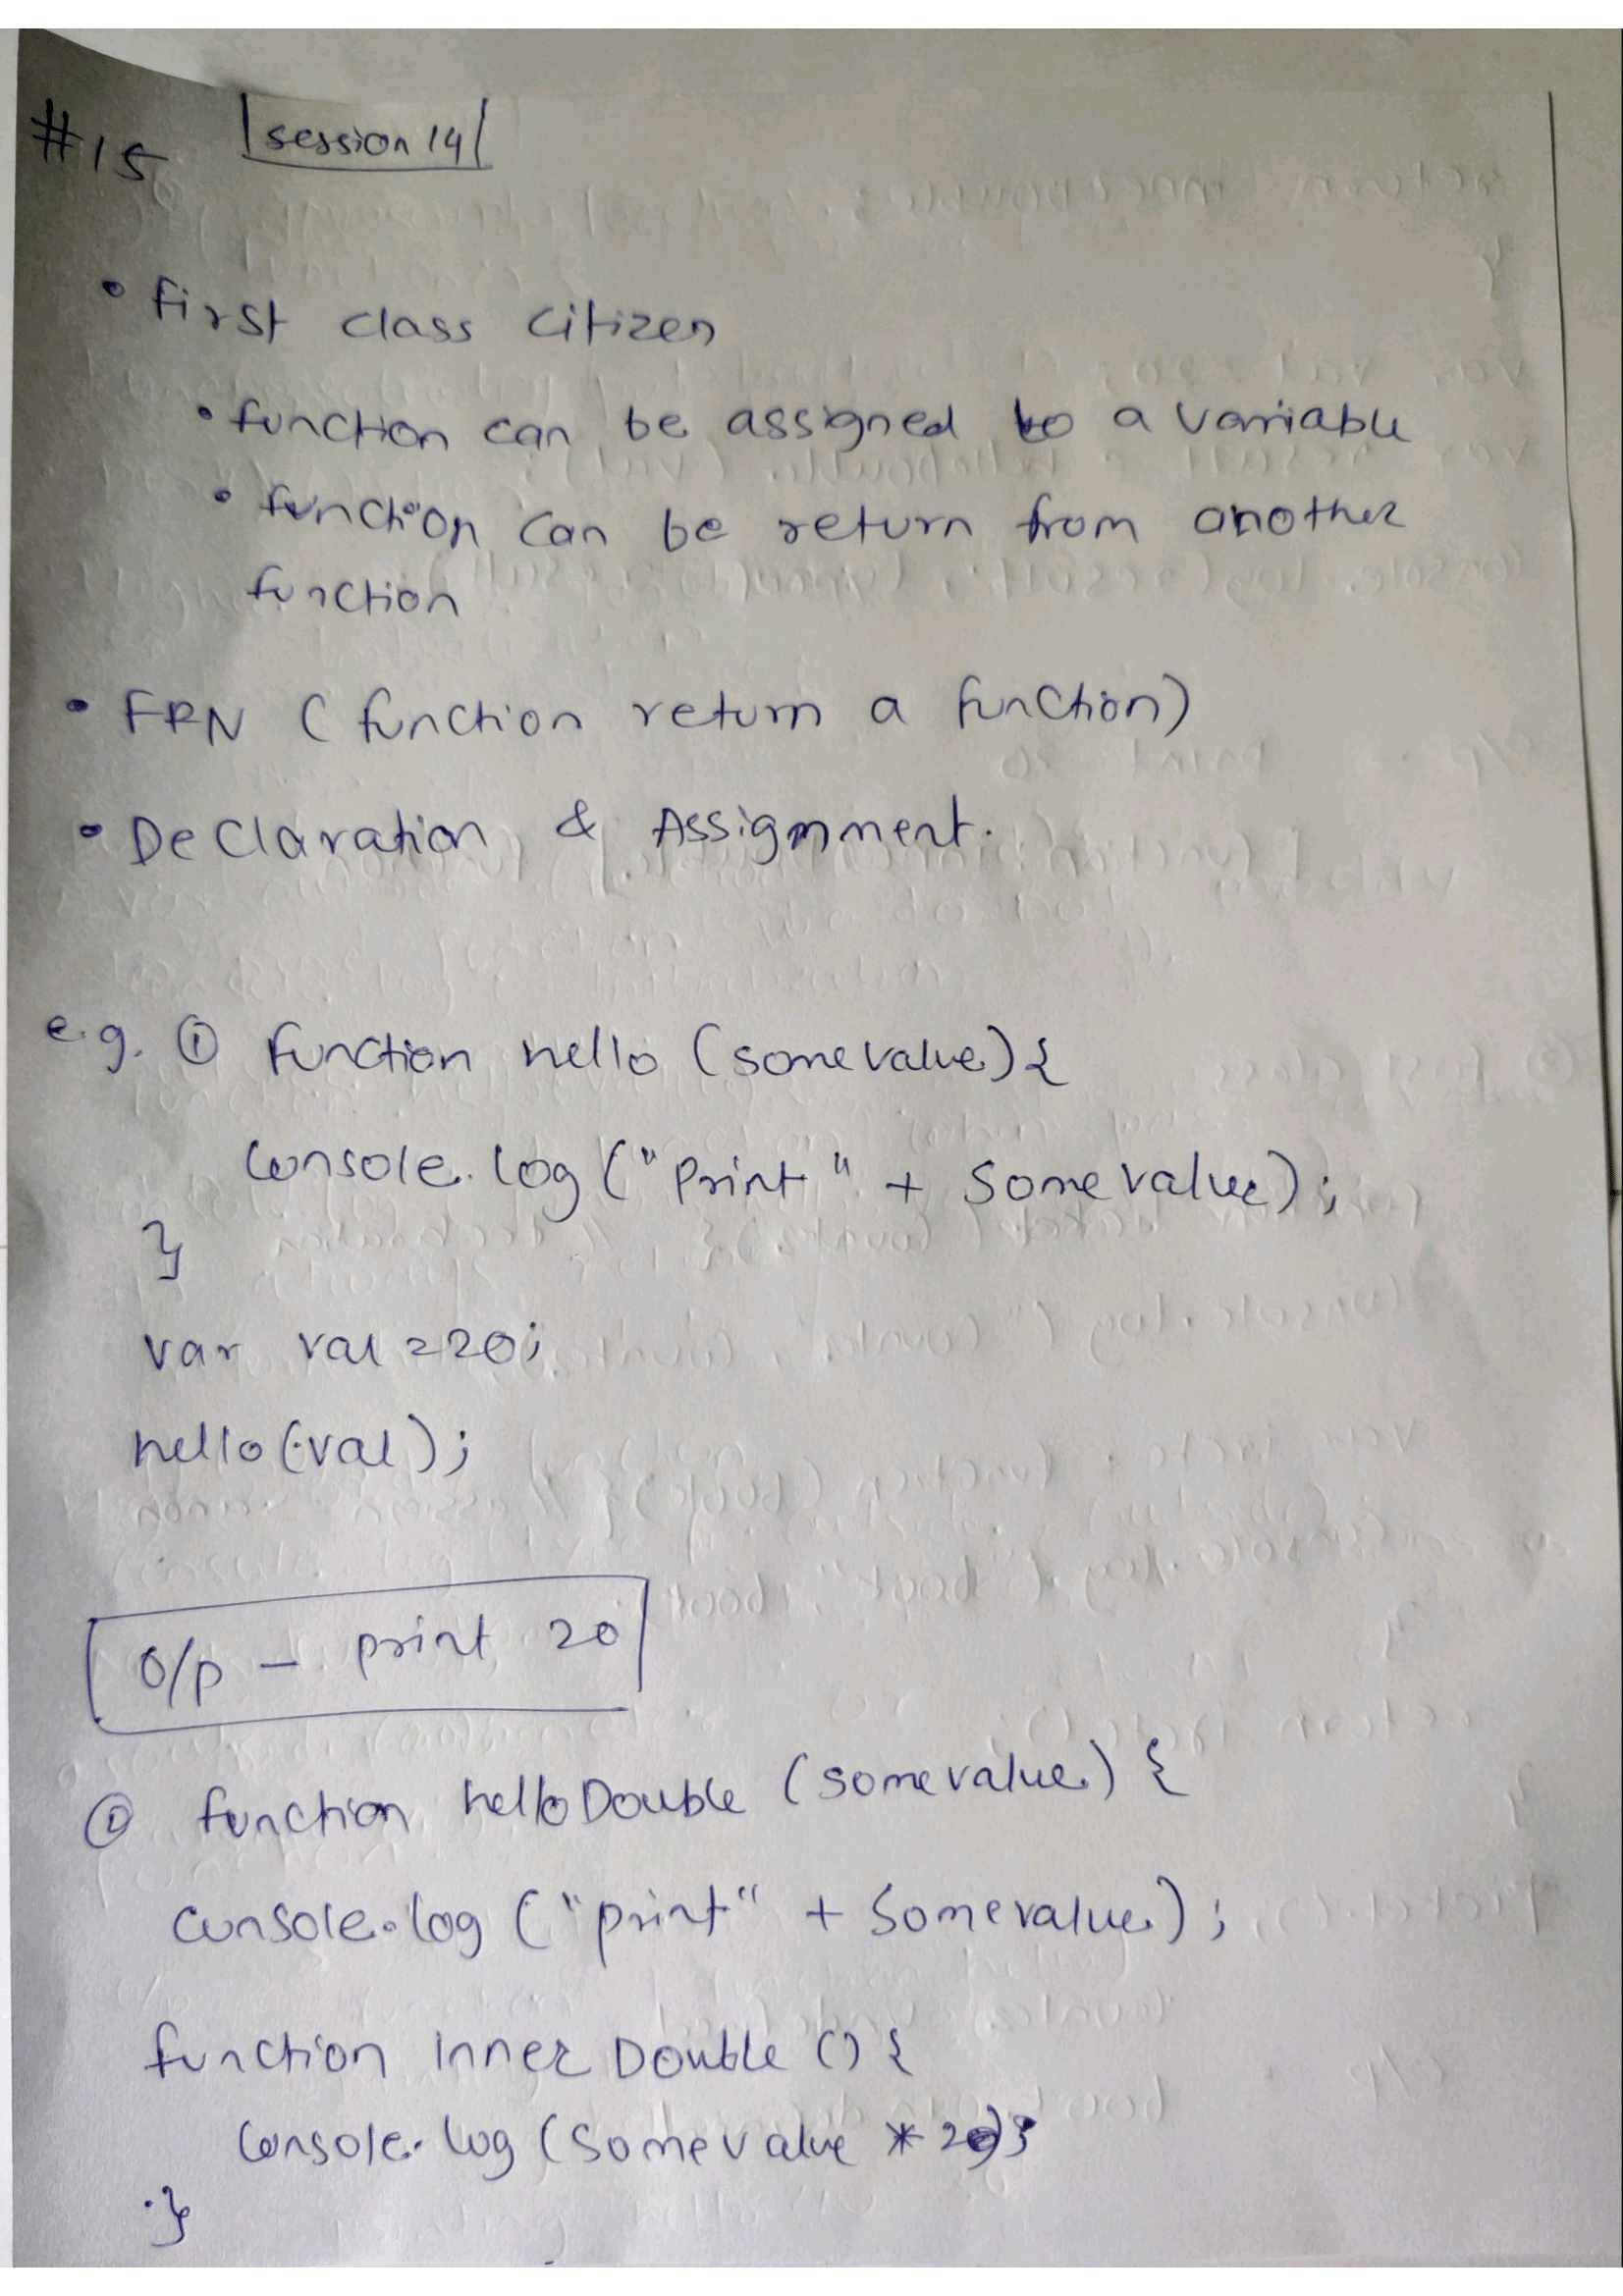 #15 session 14
• first class citizen
• function can be assigned to a variable
• function can be return from another
function
• FRN (function return a function)
• Declaration & Assignment.
e.g. ① function hello (somevalue){
console.log ("Print" + Somevalue);
}
var val = 20;
hello(val);
O/p – print 20
② function helloDouble (somevalue) {
console.log ("print" + Somevalue);
function innerDouble () {
console.log (Somevalue * 2);
}